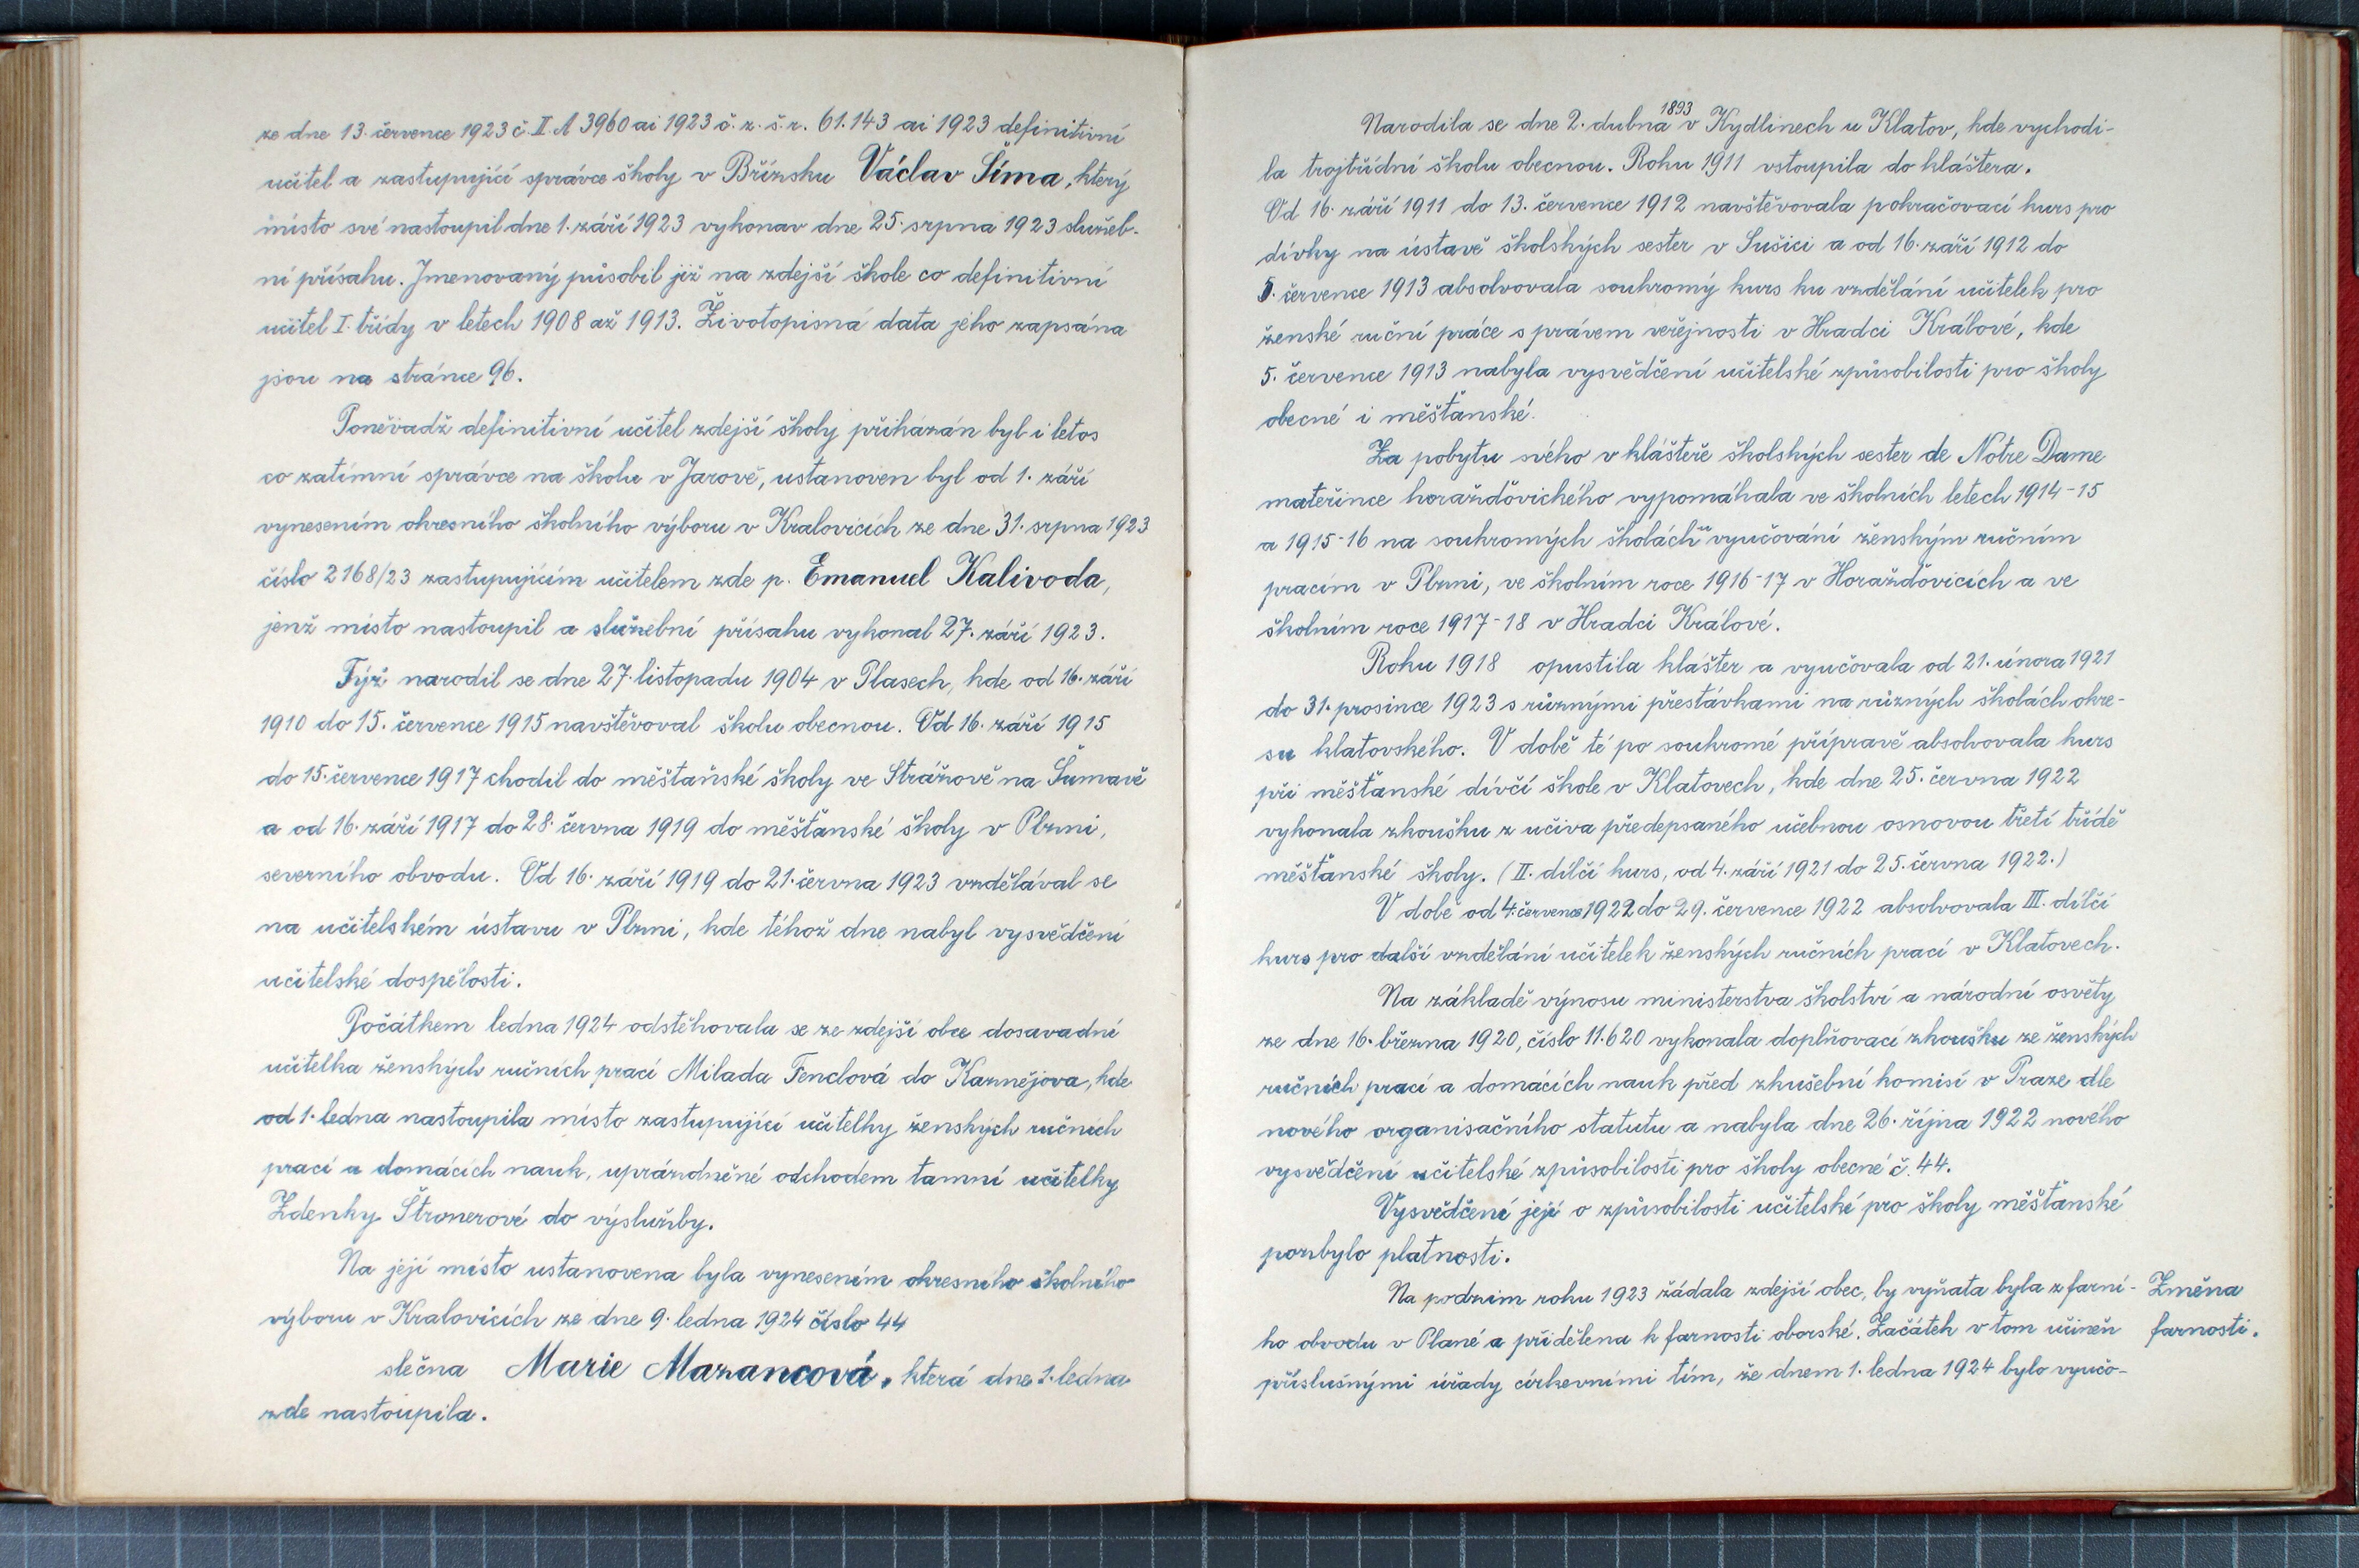 ze dne 13. července 1923 č. II. A 3960 ai 1923 č. z. š. r. 61.143 ai 1923 definitivní
učitel a zastupující správce školy v Břízsku Václav Šíma, který
místo své nastoupil dne 1. září 1923 vykonav dne 25. srpna 1923 služeb-
ní přísahu. Jmenovaný působil již na zdejší škole co definitivní
učitel I. třídy v letech 1908 až 1913. Životopisná data jeho zapsána
jsou na stránce 96.
Poněvadž definitivní učitel zdejší školy přikázán byl i letos
co zatímní správce na školu v Jarově, ustanoven byl od 1. září
vynesením okresního školního výboru v Kralovicích ze dne 31. srpna 1923
číslo 2168/23 zastupujícím učitelem zde p. Emanuel Kalivoda,
jenž místo nastoupil a služební přísahu vykonal 27. září 1923.
Týž narodil se dne 27. listopadu 1904 v Plasech, kde od 16. září
1910 do 15. července 1915 navštěvoval školu obecnou. Od 16. září 1915
do 15. července 1917 chodil do měšťanské školy ve Strážově na Šumavě
a od 16. září 1917 do 28. června 1919 do měšťanské školy v Plzni,
severního obvodu. Od 16. září 1919 do 21. června 1923 vzdělával se
na učitelském ústavu v Plzni, kde téhož dne nabyl vysvědčení
učitelské dospělosti.
Počátkem ledna 1924 odstěhovala se ze zdejší obce dosavadní
učitelka ženských ručních prací Milada Fenclová do Kaznějova, kde
od 1. ledna nastoupila místo zastupující učitelky ženských ručních
prací a domácích nauk, uprázdněné odchodem tamní učitelky
Zdenky Štronerové do výslužby.
Na její místo ustanovena byla vynesením okresního školního
výboru v Kralovicích ze dne 9. ledna 1924 číslo 44
slečna Marie Mazancová, která dne 1. ledna
zde nastoupila.
Narodila se dne 2. dubna 1893 v Kydlinech u Klatov, kde vychodi-
la trojtřídní školu obecnou. Roku 1911 vstoupila do kláštera.
Od 16. září 1911 do 13. července 1912 navštěvovala pokračovací kurs pro
dívky na ústavě školských sester v Sušici a od 16. září 1912 do
5. července 1913 absolvovala soukromý kurs ku vzdělání učitelek pro
ženské ruční práce s právem veřejnosti v Hradci Králové, kde
5. července 1913 nabyla vysvědčení učitelské způsobilosti pro školy
obecné i měšťanské.
Za pobytu svého v klášteře školských sester de Notre Dame
mateřince horažďovického vypomáhala ve školních letech 1914-15
a 1915-16 na soukromých školách vyučování ženským ručním
pracím v Plzni, ve školním roce 1916-17 v Horažďovicích a ve
školním roce 1917-18 v Hradci Králové.
Roku 1918 opustila klášter a vyučovala od 21. února 1921
do 31. prosince 1923 s různými přestávkami na různých školách okre-
su klatovského. V době té po soukromé přípravě absolvovala kurs
při měšťanské dívčí škole v Klatovech, kde dne 25. června 1922
vykonala zkoušku z učiva předepsaného učebnou osnovou třetí třídě
měšťanské školy. (II. dílčí kurs, od 4. září 1921 do 25. června 1922.)
V době od 4. července 1922 do 29. července 1922 absolvovala III. dílčí
kurs pro další vzdělání učitelek ženských ručních prací v Klatovech.
Na základě výnosu ministerstva školství a národní osvěty
ze dne 16. března 1920, číslo 11.620 vykonala doplňovací zkoušku ze ženských
ručních prací a domácích nauk před zkušební komisí v Praze dle
nového organisačního statutu a nabyla dne 26. října 1922 nového
vysvědčení učitelské způsobilosti pro školy obecné č. 44.
Vysvědčení její o způsobilosti učitelské pro školy měšťanské
pozbylo platnosti.
Na podzim roku 1923 žádala zdejší obec, by vyňata byla z farní- Změna
ho obvodu v Plané a přidělena k farnosti oborské. Začátek v tom učiněn farnosti.
příslušnými úřady církevními tím, že dnem 1. ledna 1924 bylo vyučo-